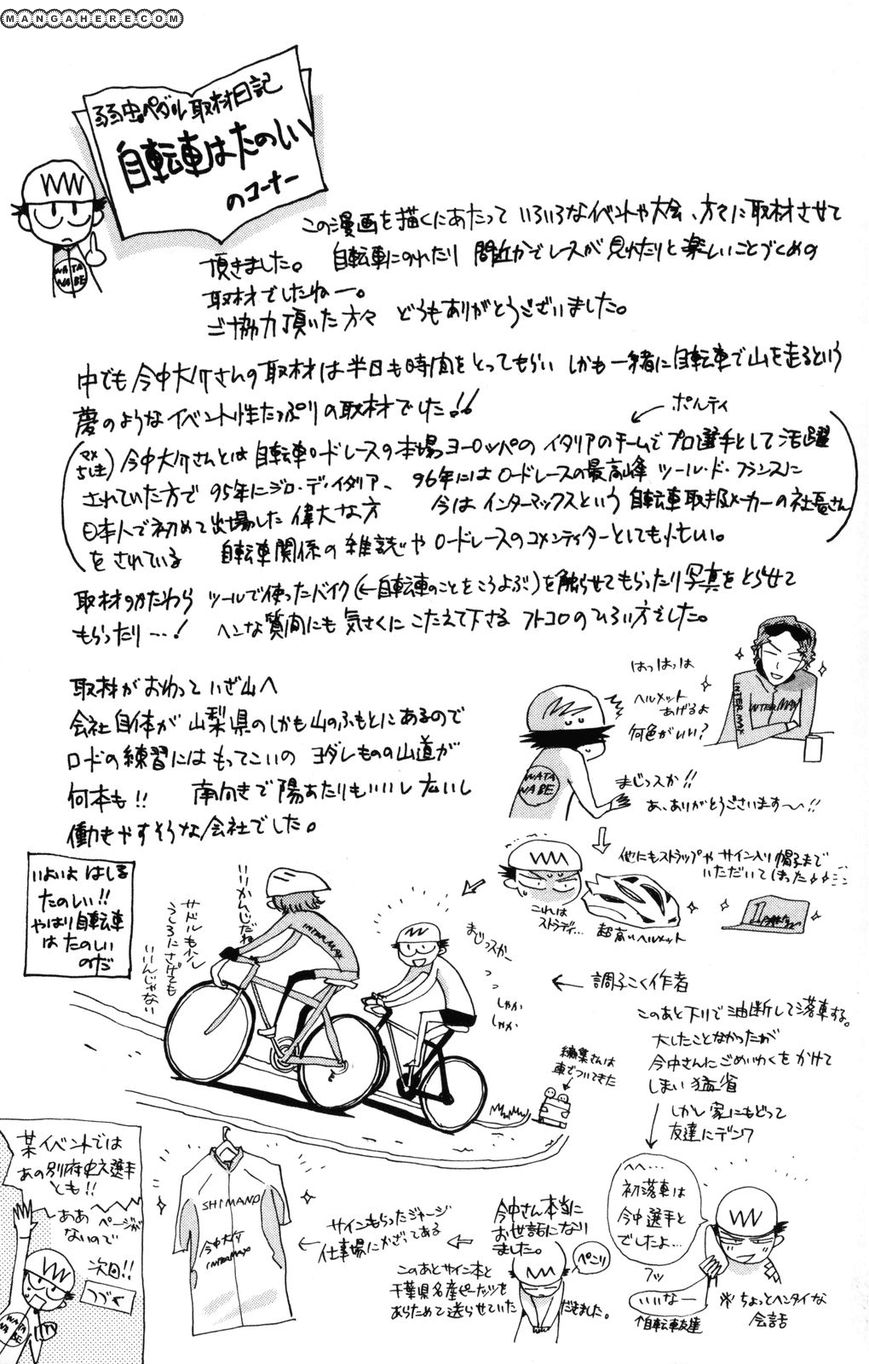 MANGAHERE.COM
弱虫ペダル取材日記
自転車はたのしい
のコーナー
WATA
NABE
この漫画を描くにあたって いろいろなイベントや大会、方々に取材させて
頂きました。 自転車にのれたり 間近かでレースが見れたりと楽しいことづくめの
取材でしたねー。
ご協力頂いた方々 どうもありがとうございました。
中でも今中大介さんの取材は半日も時間をとってもらい しかも一緒に自転車で山を走るという
夢のようなイベント性たっぷりの取材でした!!
ポルティ
今中大介さんとは自転車ロードレースの本場ヨーロッパのイタリアのチームでプロ選手として活躍
されていた方で 95年にジロ・デ・イタリア、 96年にはロードレースの最高峰 ツール・ド・フランスに
日本人で初めて出場した偉大な方 今はインターマックスという自転車取扱メーカーの社長さん
をされている 自転車関係の雑誌やロードレースのコメンテイターとしても
取材のかたわら ツールで使ったバイク(←自転車のことをこうよぶ)を触らせてもらったり写真をとらせて
もらったり…! ヘンな質問にも気さくにこたえて下さる フトコロのひろい方でした。
取材がおわって いざ山へ
会社自体が山梨県のしかも山のふもとにあるので
ロードの練習にはもってこいの ヨダレものの山道が
何本も!! 南向きで陽あたりもいいし広いし
働きやすそうな会社でした。
はっはっは
ヘルメット
あげるよ
何色がいい?
INTERMAX
INTERMAX
WATA
NABE
まじっスか!!
あ、ありがとうございます〜!!
他にもストラップやサイン入り帽子まで
いただいてしまった
これは
ストラディ…
超高いヘルメット
いよいよ はしる
たのしい!!
やはり自転車
はたのしい
のだ
いいかんじだね
サドルもう少し
うしろにさげても
いいんじゃない
INTERMAX
まじっスかー
しゃか
しゃか
← 調子こく作者
編集さんは
車でついてきた
このあと下りで油断して落車する。
大したことなかったが
今中さんにごめいわくをかけて
しまい猛省
しかし家にもどって
友達にデンワ
へへ…
初落車は
今中選手と
でしたよ…
フッ
いいなー
↑自転車友達
※ちょっとヘンタイな
会話
今中さん本当に
お世話になり
ました。
ぺこり
このあとサイン本と
千葉県名産ピーナッツを
あらためて送らせていただきました。
サインもらったジャージ
仕事場にかざってある
SHIMANO
今中大介
INTERMAX
某イベントでは
あの別府史之選手
とも!!
しああ ページが
ないので
次回!!
つづく
WATA
NABE